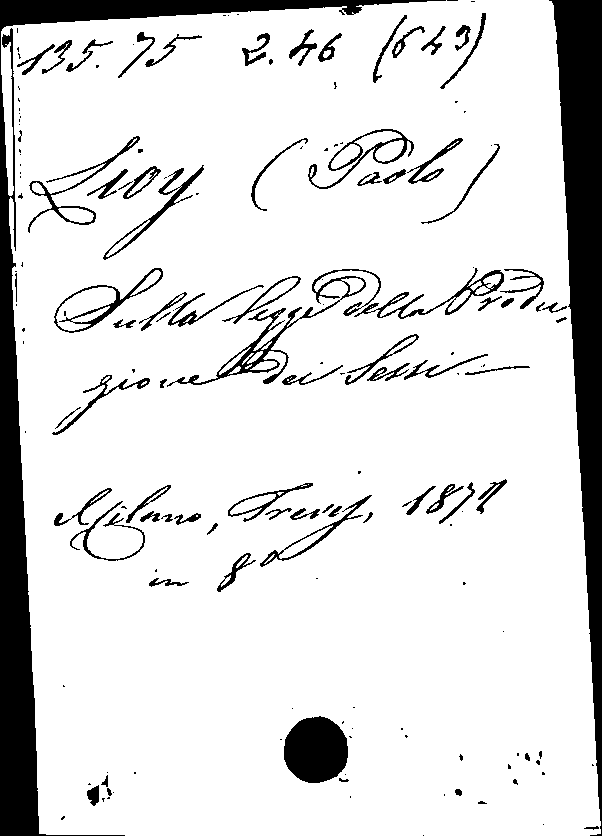 135. 75 2. 46 (649)
Lioy (Paolo)
Sulla legge della Produ-
zione dei Sessi -
Milano, Treves, 1872
in 8º